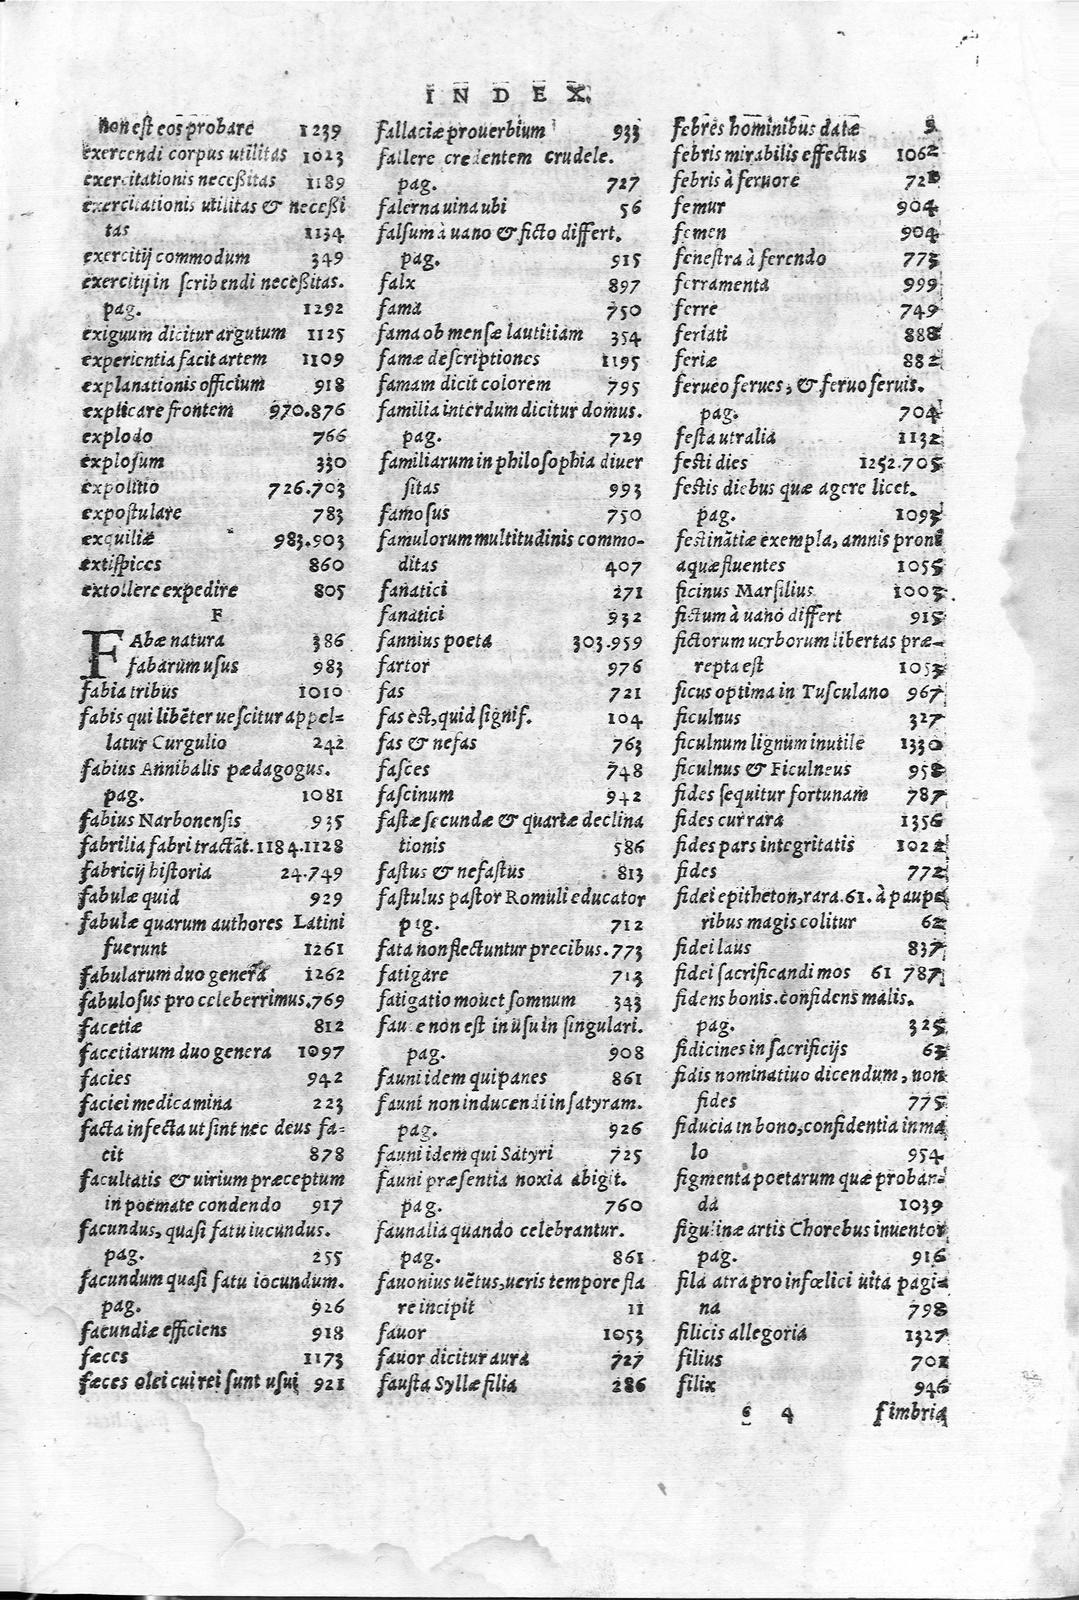 INDEX.
non est eos probare 1239
exercendi corpus utilitas 1023
exercitationis neceßitas 1189
exercitationis utilitas & neceßi
tas 1134
exercitij commodum 349
exercitij in scribendi neceßitas.
pag. 1292
exiguum dicitur argutum 1125
experientia facit artem 1109
explanationis officium 918
explicare frontem 970.876
explodo 766
explosum 330
expolitio 726.703
expostulare 783
exquiliæ 983.903
extispices 860
extollere expedire 805
F
FAbæ natura 386
fabarum usus 983
fabia tribus 1010
fabis qui libēter uescitur appel=
latur Curgulio 242
fabius Annibalis pædagogus.
pag. 1081
fabius Narbonensis 935
fabrilia fabri tractāt. 1184.1128
fabricij historia 24.749
fabulæ quid 929
fabulæ quarum authores Latini
fuerunt 1261
fabularum duo genera 1262
fabulosus pro celeberrimus. 769
facetiæ 812
facetiarum duo genera 1097
facies 942
faciei medicamina 223
facta infecta ut sint nec deus fa=
cit 878
facultatis & uirium præceptum
in poemate condendo 917
facundus, quasi fatu iucundus.
pag. 255
facundum quasi fatu iocundum.
pag. 926
facundiæ efficiens 918
fæces 1173
fæces olei cui rei sunt usui 921
fallaciæ prouerbium 933
fallere credentem crudele.
pag. 727
falerna uina ubi 56
falsum à uano & ficto differt.
pag. 915
falx 897
fama 750
fama ob mensæ lautitiam 354
famæ descriptiones 1195
famam dicit colorem 795
familia interdum dicitur domus.
pag. 729
familiarum in philosophia diuer
sitas 993
famosus 750
famulorum multitudinis commo-
ditas 407
fanatici 271
fanatici 932
fannius poeta 303.959
fartor 976
fas 721
fas est, quid signif. 104
fas & nefas 763
fasces 748
fascinum 942
fastæ secundæ & quartæ declina
tionis 586
fastus & nefastus 813
fastulus pastor Romuli educator
pag. 712
fata non flectuntur precibus. 773
fatigare 713
fatigatio mouet somnum 343
fauce non est in usu in singulari.
pag. 908
fauni idem qui panes 861
fauni non inducendi in satyram.
pag. 926
fauni idem qui Satyri 725
fauni præsentia noxia abigit.
pag. 760
faunalia quando celebrantur.
pag. 861
fauonius uētus, ueris tempore fla
re incipit 11
fauor 1053
fauor dicitur aura 727
fausta Syllæ filia 286
febres hominibus datæ 9
febris mirabilis effectus 1062
febris à feruore 721
femur 904
femen 904
fenestra à ferendo 773
ferramenta 999
ferre 749
feriati 888
feriæ 882
ferueo ferues, & feruo feruis.
pag. 704
festa utralia 1132
festi dies 1252.705
festis diebus quæ agere licet.
pag. 1093
festinātiæ exempla, amnis proni
aquæ fluentes 1055
ficinus Marsilius 1003
fictum à uano differt 915
fictorum uerborum libertas præ-
repta est 1053
ficus optima in Tusculano 967
ficulnus 327
ficulnum lignum inutile 1330
ficulnus & Ficulneus 958
fides sequitur fortunam 787
fides currara 1356
fides pars integritatis 1022
fides 772
fidei epitheton, rara. 61. à paupe
ribus magis colitur 62
fidei laus 837
fidei sacrificandi mos 61 787
fidens bonis. confidens malis.
pag. 325
fidicines in sacrificijs 63
fidis nominatiuo dicendum, non
fides 775
fiducia in bono, confidentia in ma
lo 954
figmenta poetarum quæ proban-
da 1039
figulinæ artis Chorebus inuentor
pag. 916
fila atra pro infœlici uita pagi=
na 798
filicis allegoria 1327
filius 701
filix 946
6 4 fimbria